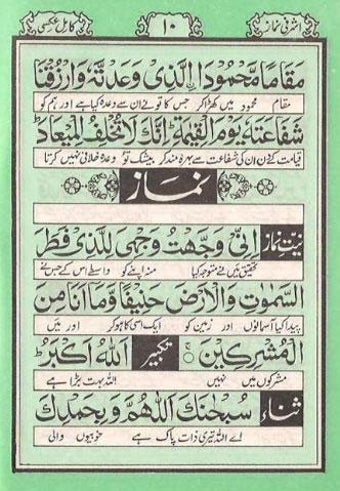 اشرفی نماز ۱۰ کامل عکسی
مَقَامًا مَّحْمُودَا ۨالَّذِیْ وَعَدْتَّهٗ وَارْزُقْنَا
مقام محمود میں کھڑا کر جس کا تو نے ان سے وعدہ کیا ہے اور ہم کو
شَفَاعَتَهٗ یَوْمَ الْقِیٰمَةِ ؕ اِنَّكَ لَا تُخْلِفُ الْمِیْعَادَ ؕ
قیامت کے دن ان کی شفاعت سے بہرہ مند کر بیشک تو وعدہ خلافی نہیں کرتا
نماز
نیتِ نماز اِنِّیْ وَجَّهْتُ وَجْهِیَ لِلَّذِیْ فَطَرَ
تحقیق میں نے متوجہ کیا منہ اپنے کو واسطے اس کے جس نے
السَّمٰوٰتِ وَالْاَرْضَ حَنِیْفًا وَّمَا اَنَا مِنَ
پیدا کیا آسمانوں اور زمین کو ایک اسی کا ہو کر اور میں
الْمُشْرِكِیْنَ تکبیر اَللهُ اَكْبَرُ ؕ
مشرکوں میں نہیں اللہ بہت بڑا ہے
ثناء سُبْحٰنَكَ اللّٰهُمَّ وَبِحَمْدِكَ
اے اللہ تیری ذات پاک ہے خوبیوں والی